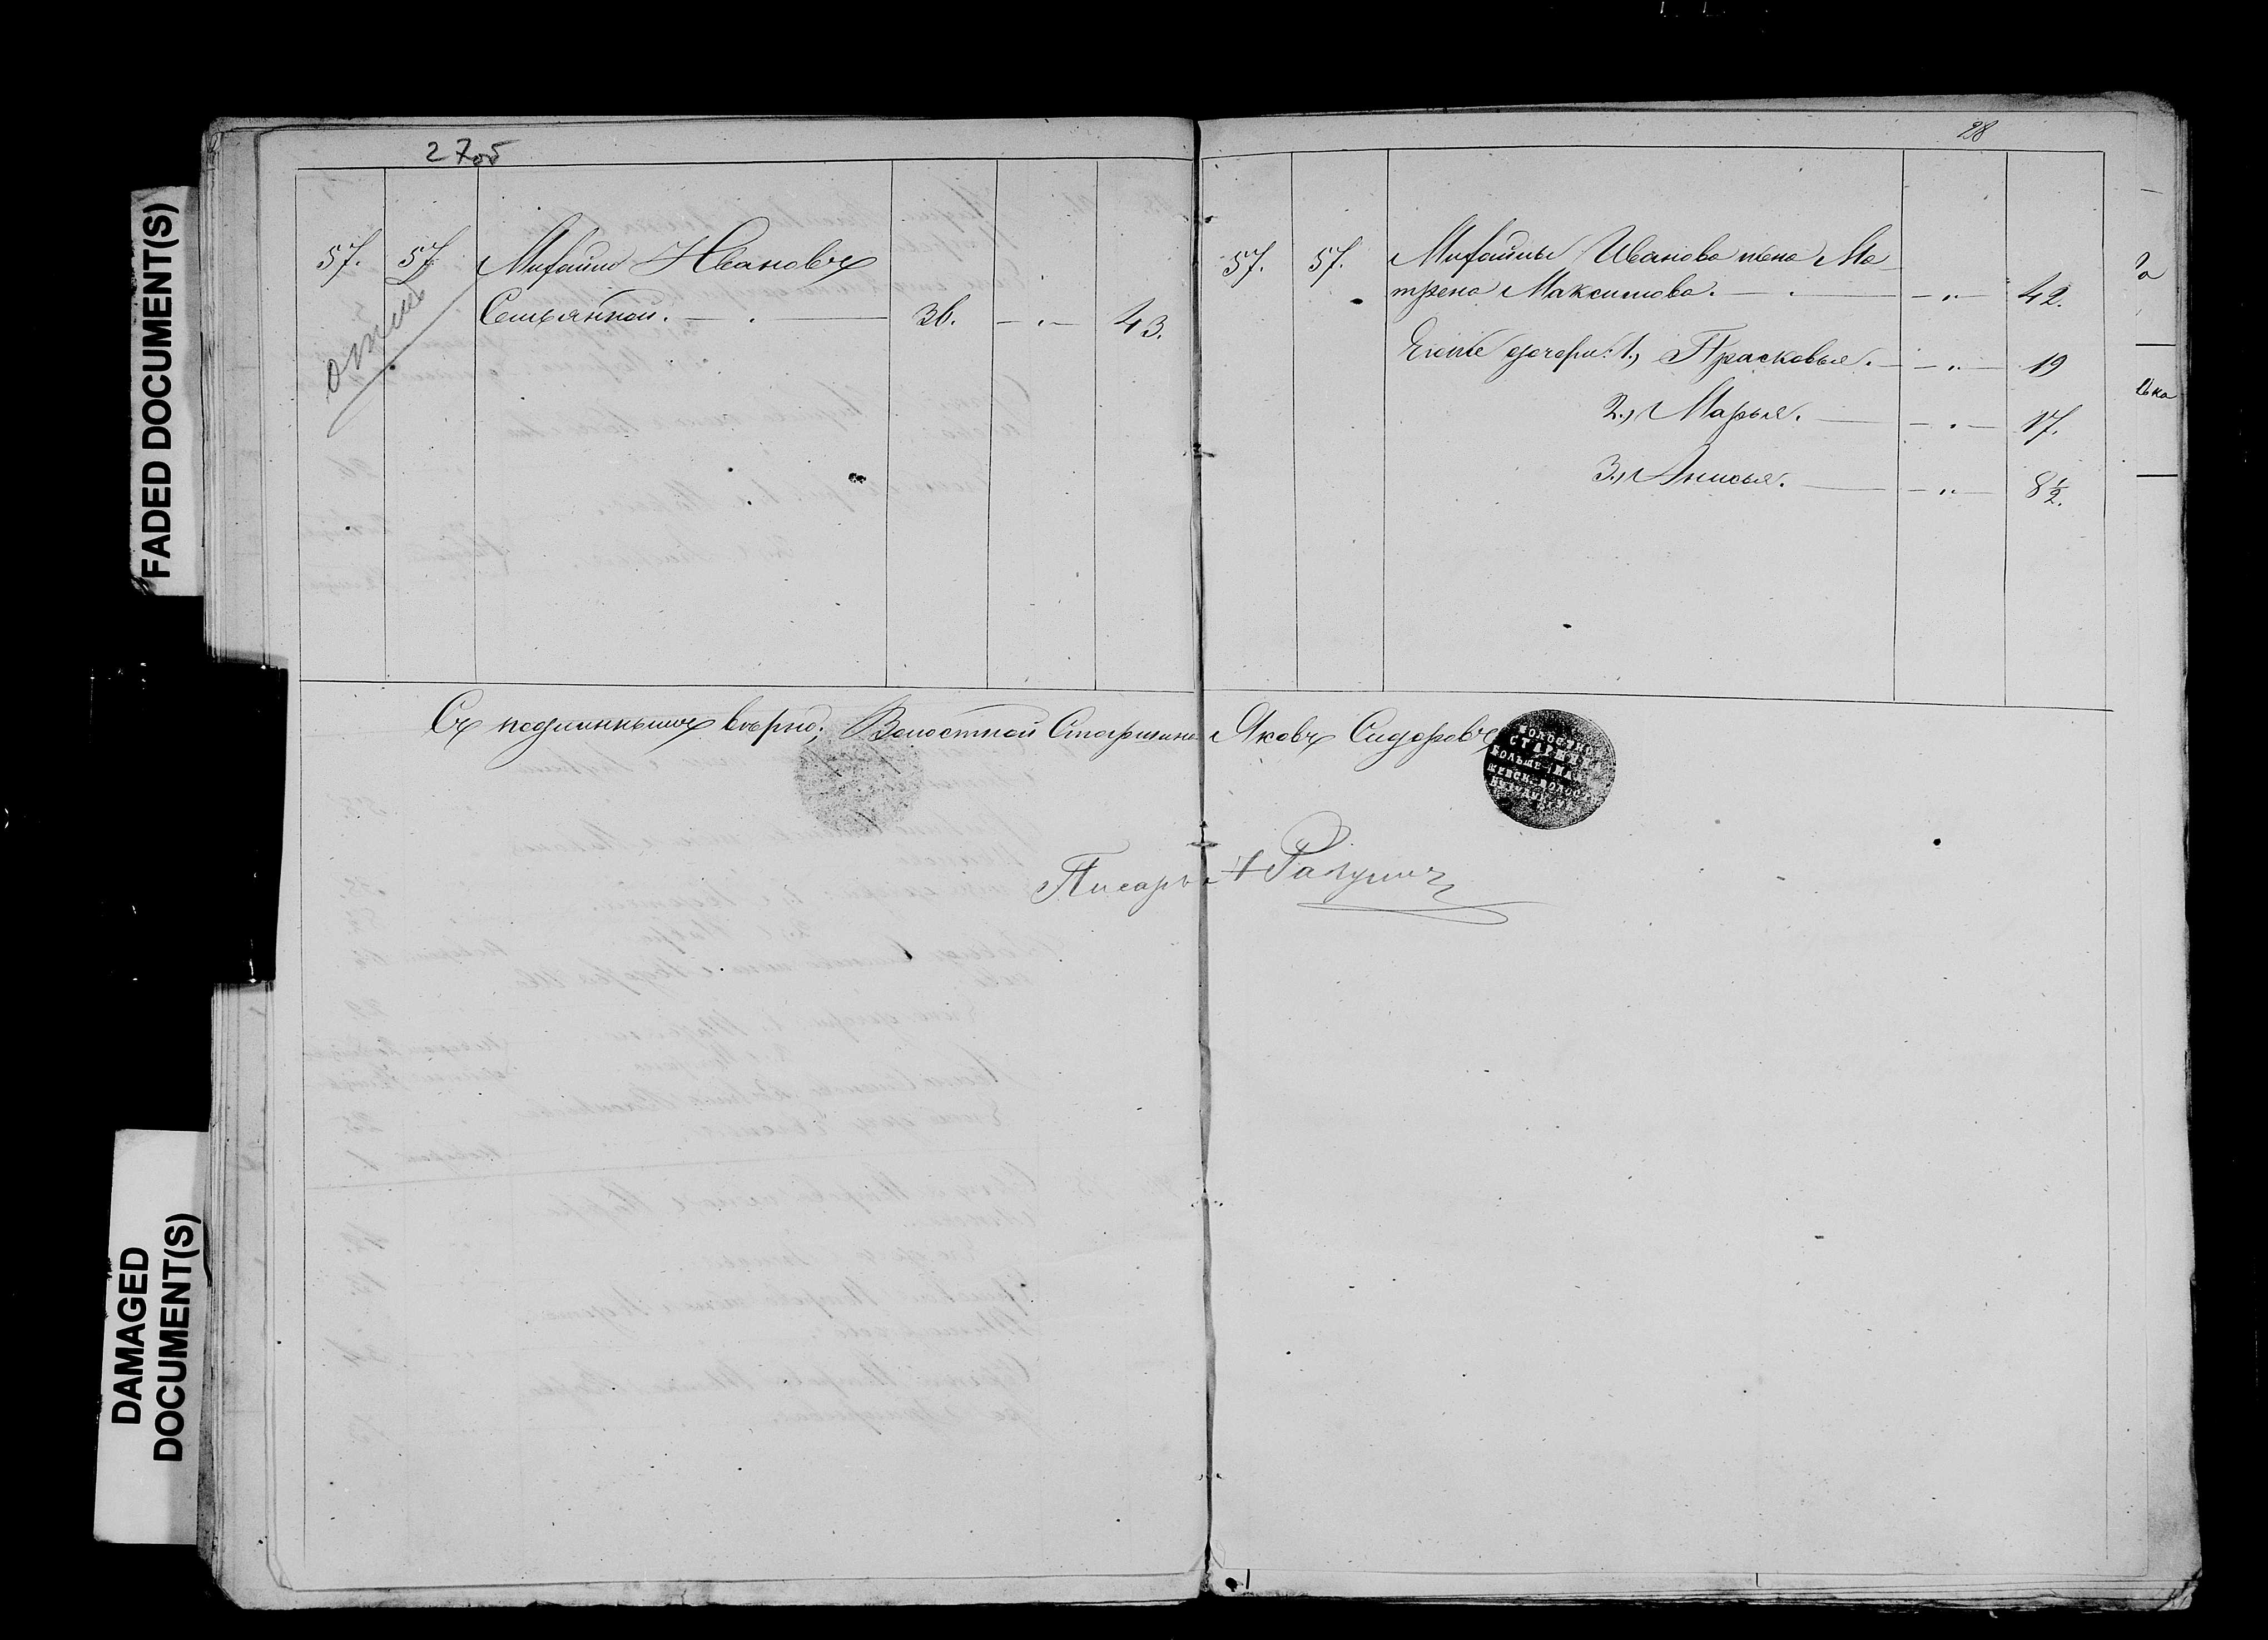 FADED DOCUMENT(S)
DAMAGED
DOCUMENT(S)
27об
57. 57. Михаилъ Ивановъ
Семьянной. 36. 43.
28
57. 57. Михайлы Иванова жена Ма-
трена Максимова. 42.
Его же дочери: 1., Прасковья. 19
2., Марья. 17.
3., Анисья. 8½.
Съ подлиннымъ вѣрно; Волостной Старшина Яковъ Сидоровъ
ВОЛОСТНОЙ
СТАРШИНА
БОЛЬШЕ
Писарь